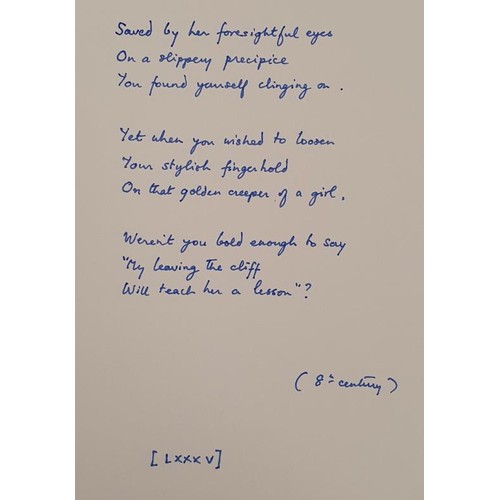 Saved by her foresightful eyes
On a slippery precipice
You found yourself clinging on.
Yet when you wished to loosen
Your stylish fingerhold
On that golden creeper of a girl,
Weren't you bold enough to say
"My leaving the cliff
Will teach her a lesson"?
(8th century)
[LXXXV]